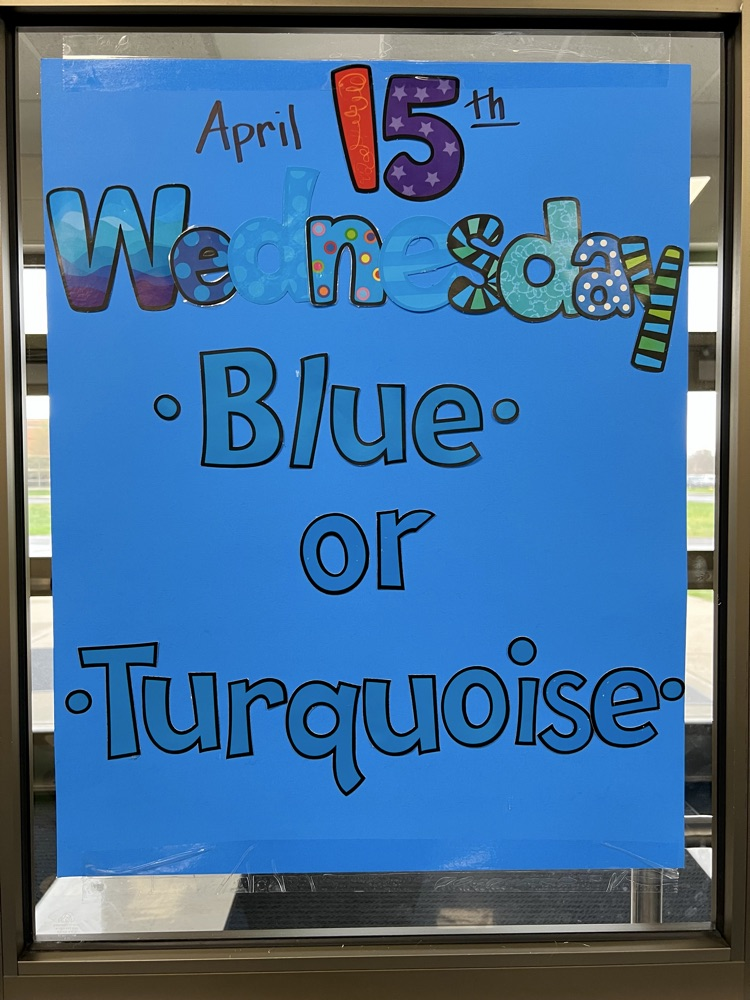 April 15th
Wednesday
·Blue·
or
·Turquoise·